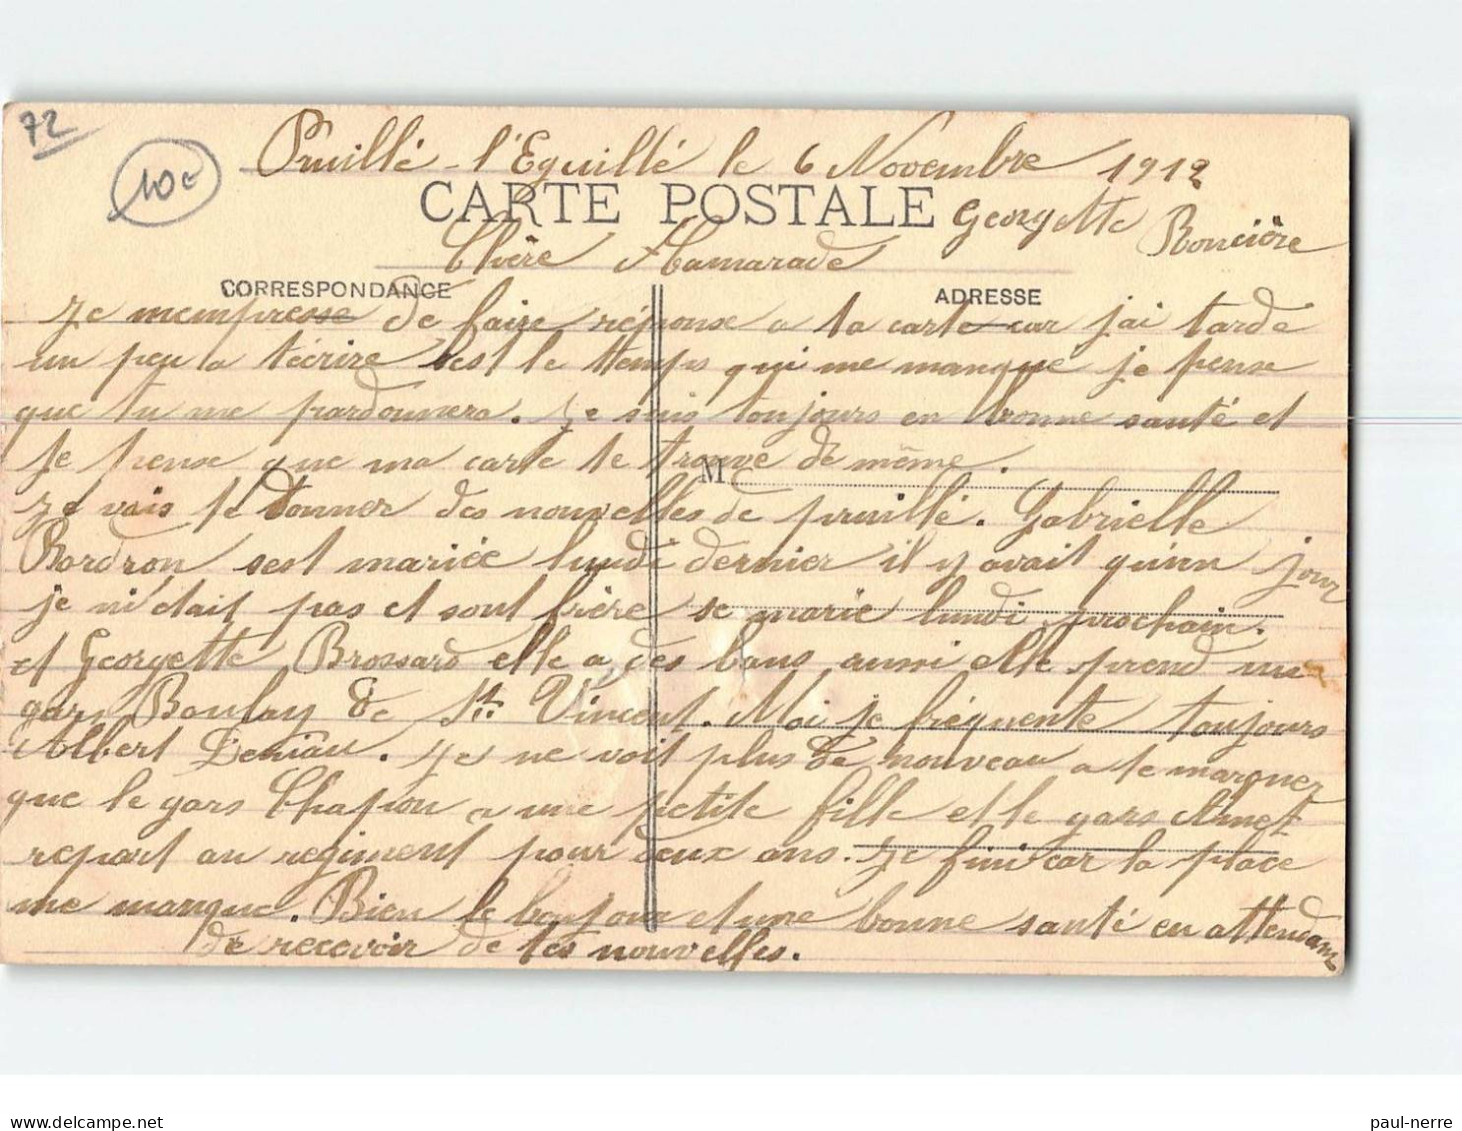 72
10€
Pruillé-l'Eguillé le 6 Novembre 1912
CARTE POSTALE
Georgette Roncière
Chère Kamarade
CORRESPONDANCE
ADRESSE
Je mempresse de faire réponse a ta carte car j'ai tarde
un peu a t'écrire c'est le temps qui me manque je pense
que tu me pardonnera. Je suis toujours en bonne santé et
je pense que ma carte te trouve de même.
M
Je vais te donner des nouvelles de pruillé. Gabrielle
Bordron sest mariée lundi dernier il y avait qu'un jour
je n'etait pas et sont frère se marie lundi prochain.
et Georgette Brossard elle a des bans aussi elle prend un
gars Boulay de St. Vincent. Moi je fréquente toujours
Albert Deniau. Je ne voit plus de nouveau a te marquer
que le gars Chapron a une petite fille et le gars
repart au regiment pour deux ans. Je fini car la place
me manque. Bien le boujour et une bonne santé en attendam
de recevoir de tes nouvelles.
paul-nerre